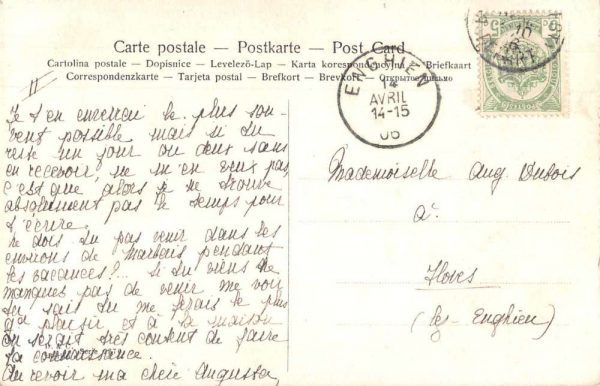 Carte postale – Postkarte – Post Card
Cartolina postale – Dopisnice – Levelezö-Lap – Karta korespondencyjna – Briefkaart
Correspondenzkarte – Tarjeta postal – Brefkort – Brevkort – Открытое письмо
ENGHIEN
14
AVRIL
14-15
06
5
II
Je t'en enverrai le plus sou-
vent possible mais si tu
reste un jour ou deux sans
en recevoir, ne m'en veux pas,
c'est que alors je ne trouve
absolument pas le temps pour
t'écrire.
Ne dois tu pas venir dans les
environs de Marbais pendant
les vacances?... Si tu viens ne
manques pas de venir me voir
tu sais tu me ferais le plus
gd plaisir et à la maison
on serait très content de faire
ta connaissance.
Au revoir ma chère Augusta,
Mademoiselle Aug. Dubois
à
Hoves
(lez-Enghien)